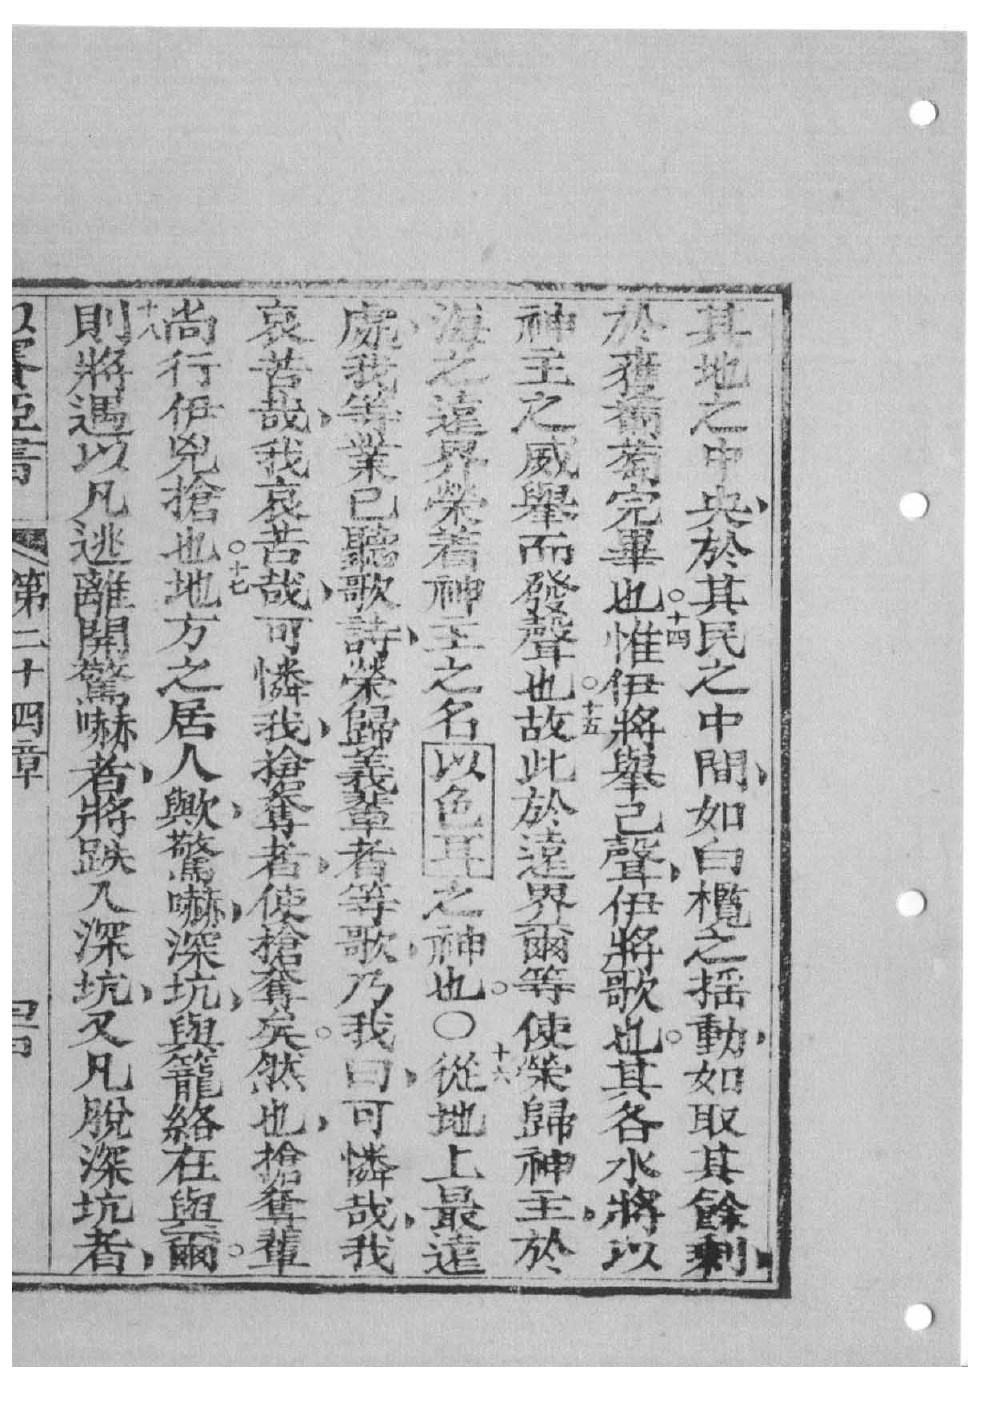 其地之中央於其民之中間如白欖之搖動如取其餘剩
於獲葡萄完畢也○十四惟伊將舉己聲伊將歌也其各水將以
神主之威舉而發聲也○十五故此於遠界爾等使榮歸神主於
海之遠界榮着神主之名以色耳之神也○十六從地上最遠
處我等業已聽歌詩榮歸義輩者等歌乃我曰可憐哉我
哀苦哉我哀苦哉可憐我搶奪者使搶奪矣然也搶奪輩
尚行伊兇搶也○十七地方之居人歟驚嚇深坑與籠絡在與爾
十八則將遇以凡逃離開驚嚇者將跌入深坑又凡脫深坑者
以賽亞書 第二十四章